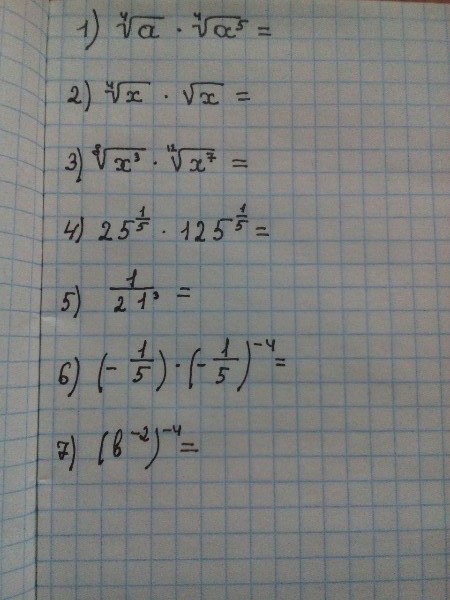 1) ⁴√a · ⁴√a⁵ =
2) ⁴√x · √x =
3) ⁸√x³ · ¹²√x⁷ =
4) 25^(1/5) · 125^(1/5) =
5) 1/(2 1³) =
6) (-1/5) · (-1/5)⁻⁴ =
7) (b⁻²)⁻⁴ =